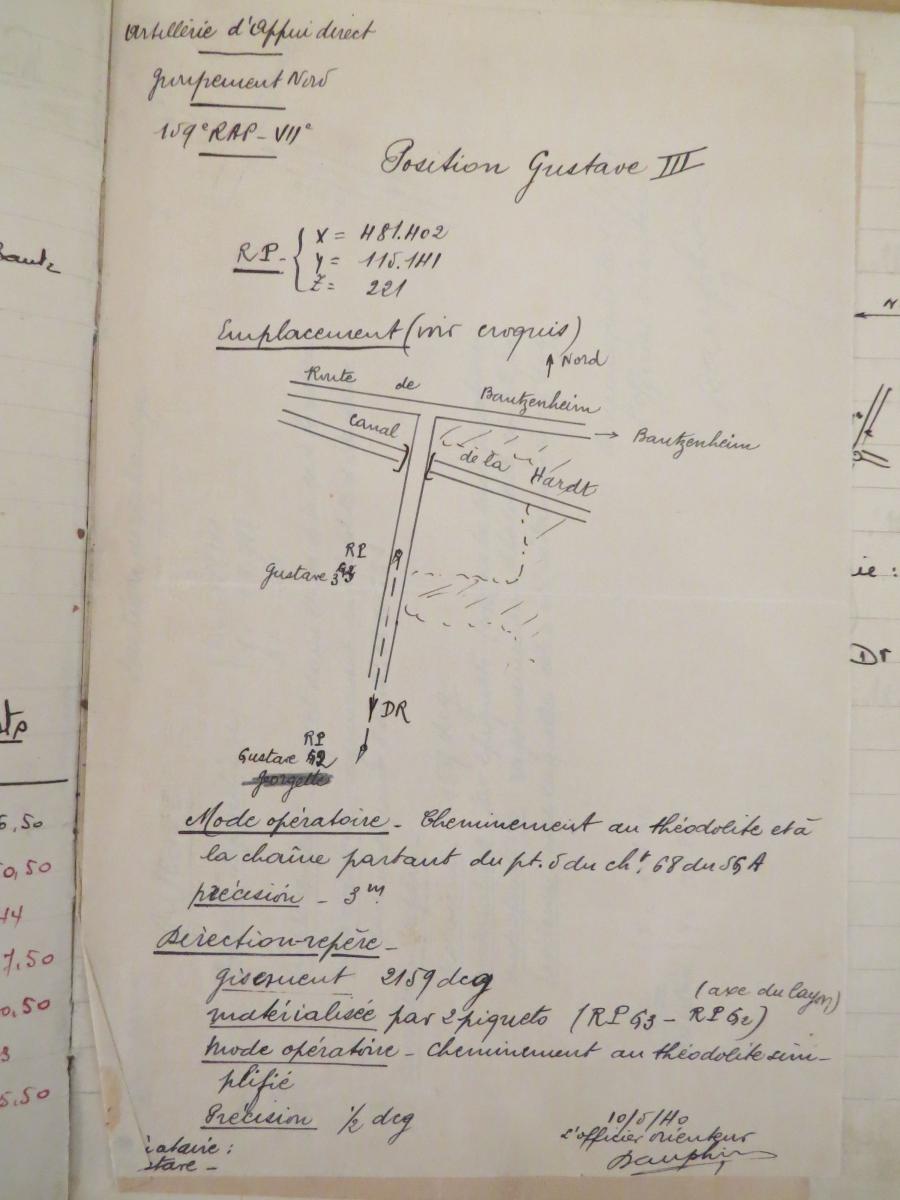 Artillerie d'Appui direct
Groupement Nord
159e RAP - VIIe
Position Gustave III
RP - { X = 481.402
Y = 115.141
Z = 221
Emplacement (voir croquis)
Nord
Route de Bantzenheim
Bantzenheim
Canal de la Hardt
RP
Gustave G3
DR
RP
Gustave G2
Georgette
Mode opératoire - Cheminement au théodolite et à
la chaîne partant du pt. 5 du cht. 68 du SGA
précision - 3m
Direction-repère -
gisement 2159 dcg
(axe du layon)
matérialisée par 2 piquets (RP G3 - RP G2)
Mode opératoire - Cheminement au théodolite sim-
plifié
Précision 1/2 dcg
10/5/40
L'officier orienteur
Dauphin
N
ie :
DR
5,50
0,50
44
7,50
0,50
3
5,50